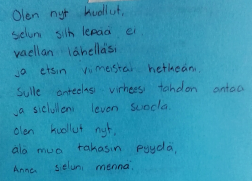 Olen nyt kuollut,
sieluni silti lepää ei
vaellan lähelläsi
ja etsin viimeistä hetkeäni.
Sulle anteeksi virheesi tahdon antaa
ja sielulleni levon suoda.
olen kuollut nyt,
älä mua takasin pyydä,
Anna sieluni mennä.